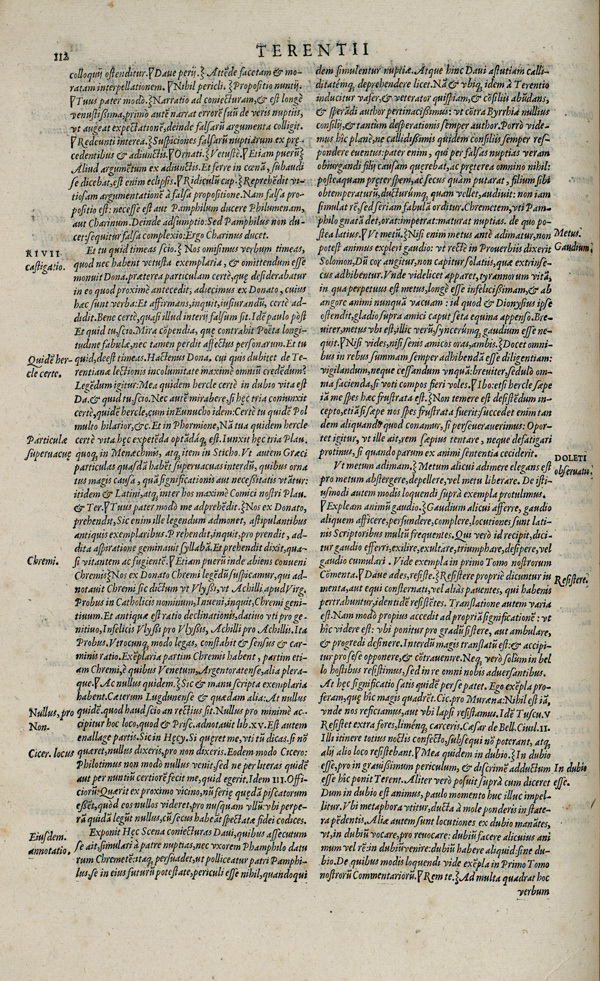 112
TERENTII
colloquij ostenditur. ∇Daue perij.ξ Attēde facetam & mo-
ratam interpellationem. ∇Nihil pericli. ξPropositio nuntij.
∇Tuus pater modo. ξNarratio ad coniecturam, & est longè
venustissima, primo autē narrat errorē suū de veris nuptijs,
vt augeat expectationē, deinde falsarū argumenta colligit.
∇Redeunti interea. ξSuspiciones falsarū nuptiarum ex pre-
cedentibus & adiunctis. ∇Ornati. ξVetustè. ∇Etiam puerūξ
Aliud argumētum ex adiunctis. Et ferre in cœnā, subaudi
se dicebat, est enim eclypsis. ∇Ridiculū cap. ξReprehēdit vi-
tiosam argumentationē à falsa propositione. Nam falsa pro-
positio est: necesse est aut Pamphilum ducere Philumenam,
aut Charinum. Deinde adsumptio: Sed Pamphilus non du-
cet: sequitur falsa complexio: Ergo Charinus ducet.
RIVII
castigatio.
Et tu quid timeas scio. ξNos omisimus verbum timeas,
quod nec habent vetusta exemplaria, & omittendum esse
monuit Dona. præterea particulam certè, que desiderabatur
in eo quod proximè antecedit, adiecimus ex Donato, cuius
hæc sunt verba: Et affirmans, inquit, iusiurandū, certè ad-
didit. Bene certè, quasi illud interij falsum sit. Idē paulo pòst
Et quid tu, scio. Mira cōpendia, que contrahit Poëta longi-
tudine fabulæ, nec tamen perdit affectus personarum. Et tu
Quidē her-
cle certe.
quid, deest timeas. Hactenus Dona. cui quis dubitet de Te-
rentianæ lectionis incolumitate maximè omniū credēdum?
Legēdum igitur: Mea quidem hercle certè in dubio vita est
Da. & quid tu, scio. Nec autē mirabere, si hęc tria coniunxit
certè, quidē hercle, cum in Eunucho idem: Certè tu quidē Pol
multo hilarior, &c. Et in Phormione, Nā tua quidem hercle
Particulæ
superuacuę
certè vita hęc expetēda optādáq, est. Iunxit hęc tria Plau.
quoq, in Menæchmis, atq, item in Sticho. Vt autem Græci
particulas quasdā habēt superuacuas interdū, quibus orna-
tus magis causa, quā significationis aut necessitatis vtātur:
itidem & Latini, atq, inter hos maximè Comici nostri Plau.
& Ter. ∇Tuus pater modò me adprehēdit. ξNos ex Donato,
prehendit, Sic enim ille legendum admonet, astipulantibus
antiquis exemplaribus. Prehendit, inquit, pro prendit, ad-
dita aspiratione geminauit syllabā. Et prehendit dixit, qua-
si vitantem ac fugientē. ∇Etiam puerū inde abiens conueni
Chremi.
Chremisξ Nos ex Donato Chremi legēdū suspicamur, qui ad-
notauit Chremi sic dictum vt Vlyssi, vt Achilli apud Virg.
Probus in Catholicis nominum, Inueni, inquit, Chremi geni-
tiuum. Et antiquæ est ratio declinationis, datiuo vti pro ge-
nitiuo, Infelicis Vlyssi pro Vlyssis, Achilli pro Achillis. Ita
Probus. Vtrocunq, modo legas, constabit & sensus & car-
minis ratio. Exēplaria partim Chremis habent, partim eti-
am Chremi, è quibus Venetum, Argentoratense, alia plera-
que. ∇Ac nullus quidem. ξSic & manu scripta exemplaria
habent. Cæterum Lugdunense & quædam alia: At nullus
Nullus, pro
Non.
quidē. quod haud scio an rectius sit. Nullus pro minimè ac-
cipitur hoc loco, quod & Prisc. adnotauit lib. xv. Est autem
enallage partis. Sic in Hęcy. Si quęret me, vti tu dicas. si nō
Cicer. locus
quæret, nullus dixeris, pro non dixeris. Eodem modo Cicero:
Philotimus non modò nullus venit, sed ne per literas quidē
aut per nuntiū certiorē fecit me, quid egerit. Idem III. Offi-
ciorū: Quærit ex proximo vicino, nū feriæ quędā piscatorum
essēt, quòd eos nullos videret, pro nusquam vllū: vbi perpe-
rā quidā legūt nullus, cū secus habeāt spectatæ fidei codices.
Eiusdem
annotatio.
Exponit Hęc Scena coniecturas Daui, quibus assecutum
se ait, simulari à patre nuptias, nec vxorem Phamphilo datu
rum Chremetē: itaq, persuadet, vt polliceatur patri Pamphi-
lus, se in eius futurū potestate, periculi esse nihil, quandoqui
dem simulentur nuptiæ. Atque hinc Daui astutiam calli-
ditatémq, deprehendere licet. Nā & vbiq, idem à Terentio
inducitur vafer, & veterator quispiam, & cōsilij abūdans,
& sperādi author pertinacissimus: vt cōtra Byrrhia nullius
consilij, & tantùm desperationis semper author. Porrò vide-
mus hic planè, ne callidissimis quidem consiliis semper res-
pondere euentus: pater enim, qui per falsas nuptias veram
obiurgandi filij causam quærebat, ac præterea omnino nihil:
posteaquam præter spem, ac secus quàm putarat, filium sibi
obtemperaturū, ducturúmq, quam vellet, audiuit: non iam
simulat rē, sed seriam fabulā orditur. Chremetem, vti Pam-
philo gnatā det, orat: imperrat: maturat nuptias. de quo po-
Metus.
stea latius. ∇Vt metū. ξNisi enim metus antè adimatur, non
Gaudium.
potest animus expleri gaudio: vt rectè in Proverbiis dixerit
Solomon, Dū cor angitur, non capitur solatiis, quæ extrinse-
cus adhibentur. Vnde videlicet apparet, tyrannorum vitā,
in qua perpetuus est metus, longè esse infelicissimam, & ab
angore animi nunquā vacuam: id quod & Dionysius ipse
ostendit, gladio supra amici caput seta equina appenso. Bre-
uiter, metus vbi est, illic verū, syncerúmq, gaudium esse ne-
quit. ∇Nisi vides, nisi senis amicos oras, ambis. ξDocet omni-
bus in rebus summam semper adhibendā esse diligentiam:
vigilandum, neque cessandum vnquā: breuiter, sedulò om-
nia facienda, si voti compos fieri voles. ∇Ibo: etsi hercle sæpe
iā me spes hæc frustrata est. ξNon temere est desistēdum in-
cepto, etiā si sæpe nos spes frustrata fuerit: succedet enim tan
dem aliquando quod conamur, si perseuerauerimus: Opor-
tet igitur, vt ille ait, rem sæpius tentare, neque defatigari
protinus, si quando parum ex animi sententia ceciderit.
DOLETI
obseruatu.
Vt metum adimam. ξMetum alicui adimere elegans est
pro metum abstergere, depellere, vel metu liberare. De isti-
usmodi autem modis loquendi suprà exempla protulimus.
∇Expleam animū gaudio. ξGaudium alicui afferre, gaudio
aliquem afficere, perfundere, complere, locutiones sunt lati-
nis Scriptoribus multū frequentes. Qui verò id recipit, dici-
tur gaudio efferri, exilire, exultare, triumphare, desipere, vel
gaudio cumulari. Vide exempla in primo Tomo nostrorum
Resistere.
Cōmenta. ∇Daue ades, resiste. ξResistere propriè dicuntur iu-
menta, aut equi consternati, vel aliàs pauentes, qui habenis
pertrahuntur, identidē resistētes. Translatione autem varia
est. Nam modò propius accedit ad propriā significationē: vt
hic videre est: vbi ponitur pro gradū sistere, aut ambulare,
& progredi desinere. Interdū magis translatū est: & accipi-
tur pro sese opponere, & cōtrauenire. Neq, verò solùm in bel
lo hostibus resistimus, sed in re omni nobis aduersantibus.
At hęc significatio satis quidē per se patet. Ego exēpla pro-
feram, quæ hic magis quadrēt. Cic. pro Murena: Nihil est iā,
vnde nos reuocemus, aut vbi lapsi resistamus. Idē Tuscu. v
Resistet extra fores, limēnq, carceris. Cæsar de Bell. Ciuil. II.
Illi itinere totius noctis confecto, subsequi nō poterant, atq,
alij alio loco resistebant. ∇Mea quidem in dubio. ξIn dubio
In dubio
esse.
esse, pro in grauissimum periculum, & discrimē adductum
esse hic ponit Terent. Aliter verò posuit suprà cum diceret
Dum in dubio est animus, paulo momento huc illuc impel-
litur. Vbi metaphora vtitur, ductā à mole ponderis in state-
ra pēdentis. Aliæ autem sunt locutiones ex dubio manātes,
vt, in dubiū vocare, pro reuocare: dubiū facere alicuius ani
mum vel rē: in dubiū venire: dubiū habere aliquid: sine du-
bio. De quibus modis loquendi vide exēpla in Primo Tomo
nostrorū Commentariorū. ∇Rem te. ξAd multa quadrat hoc
verbum